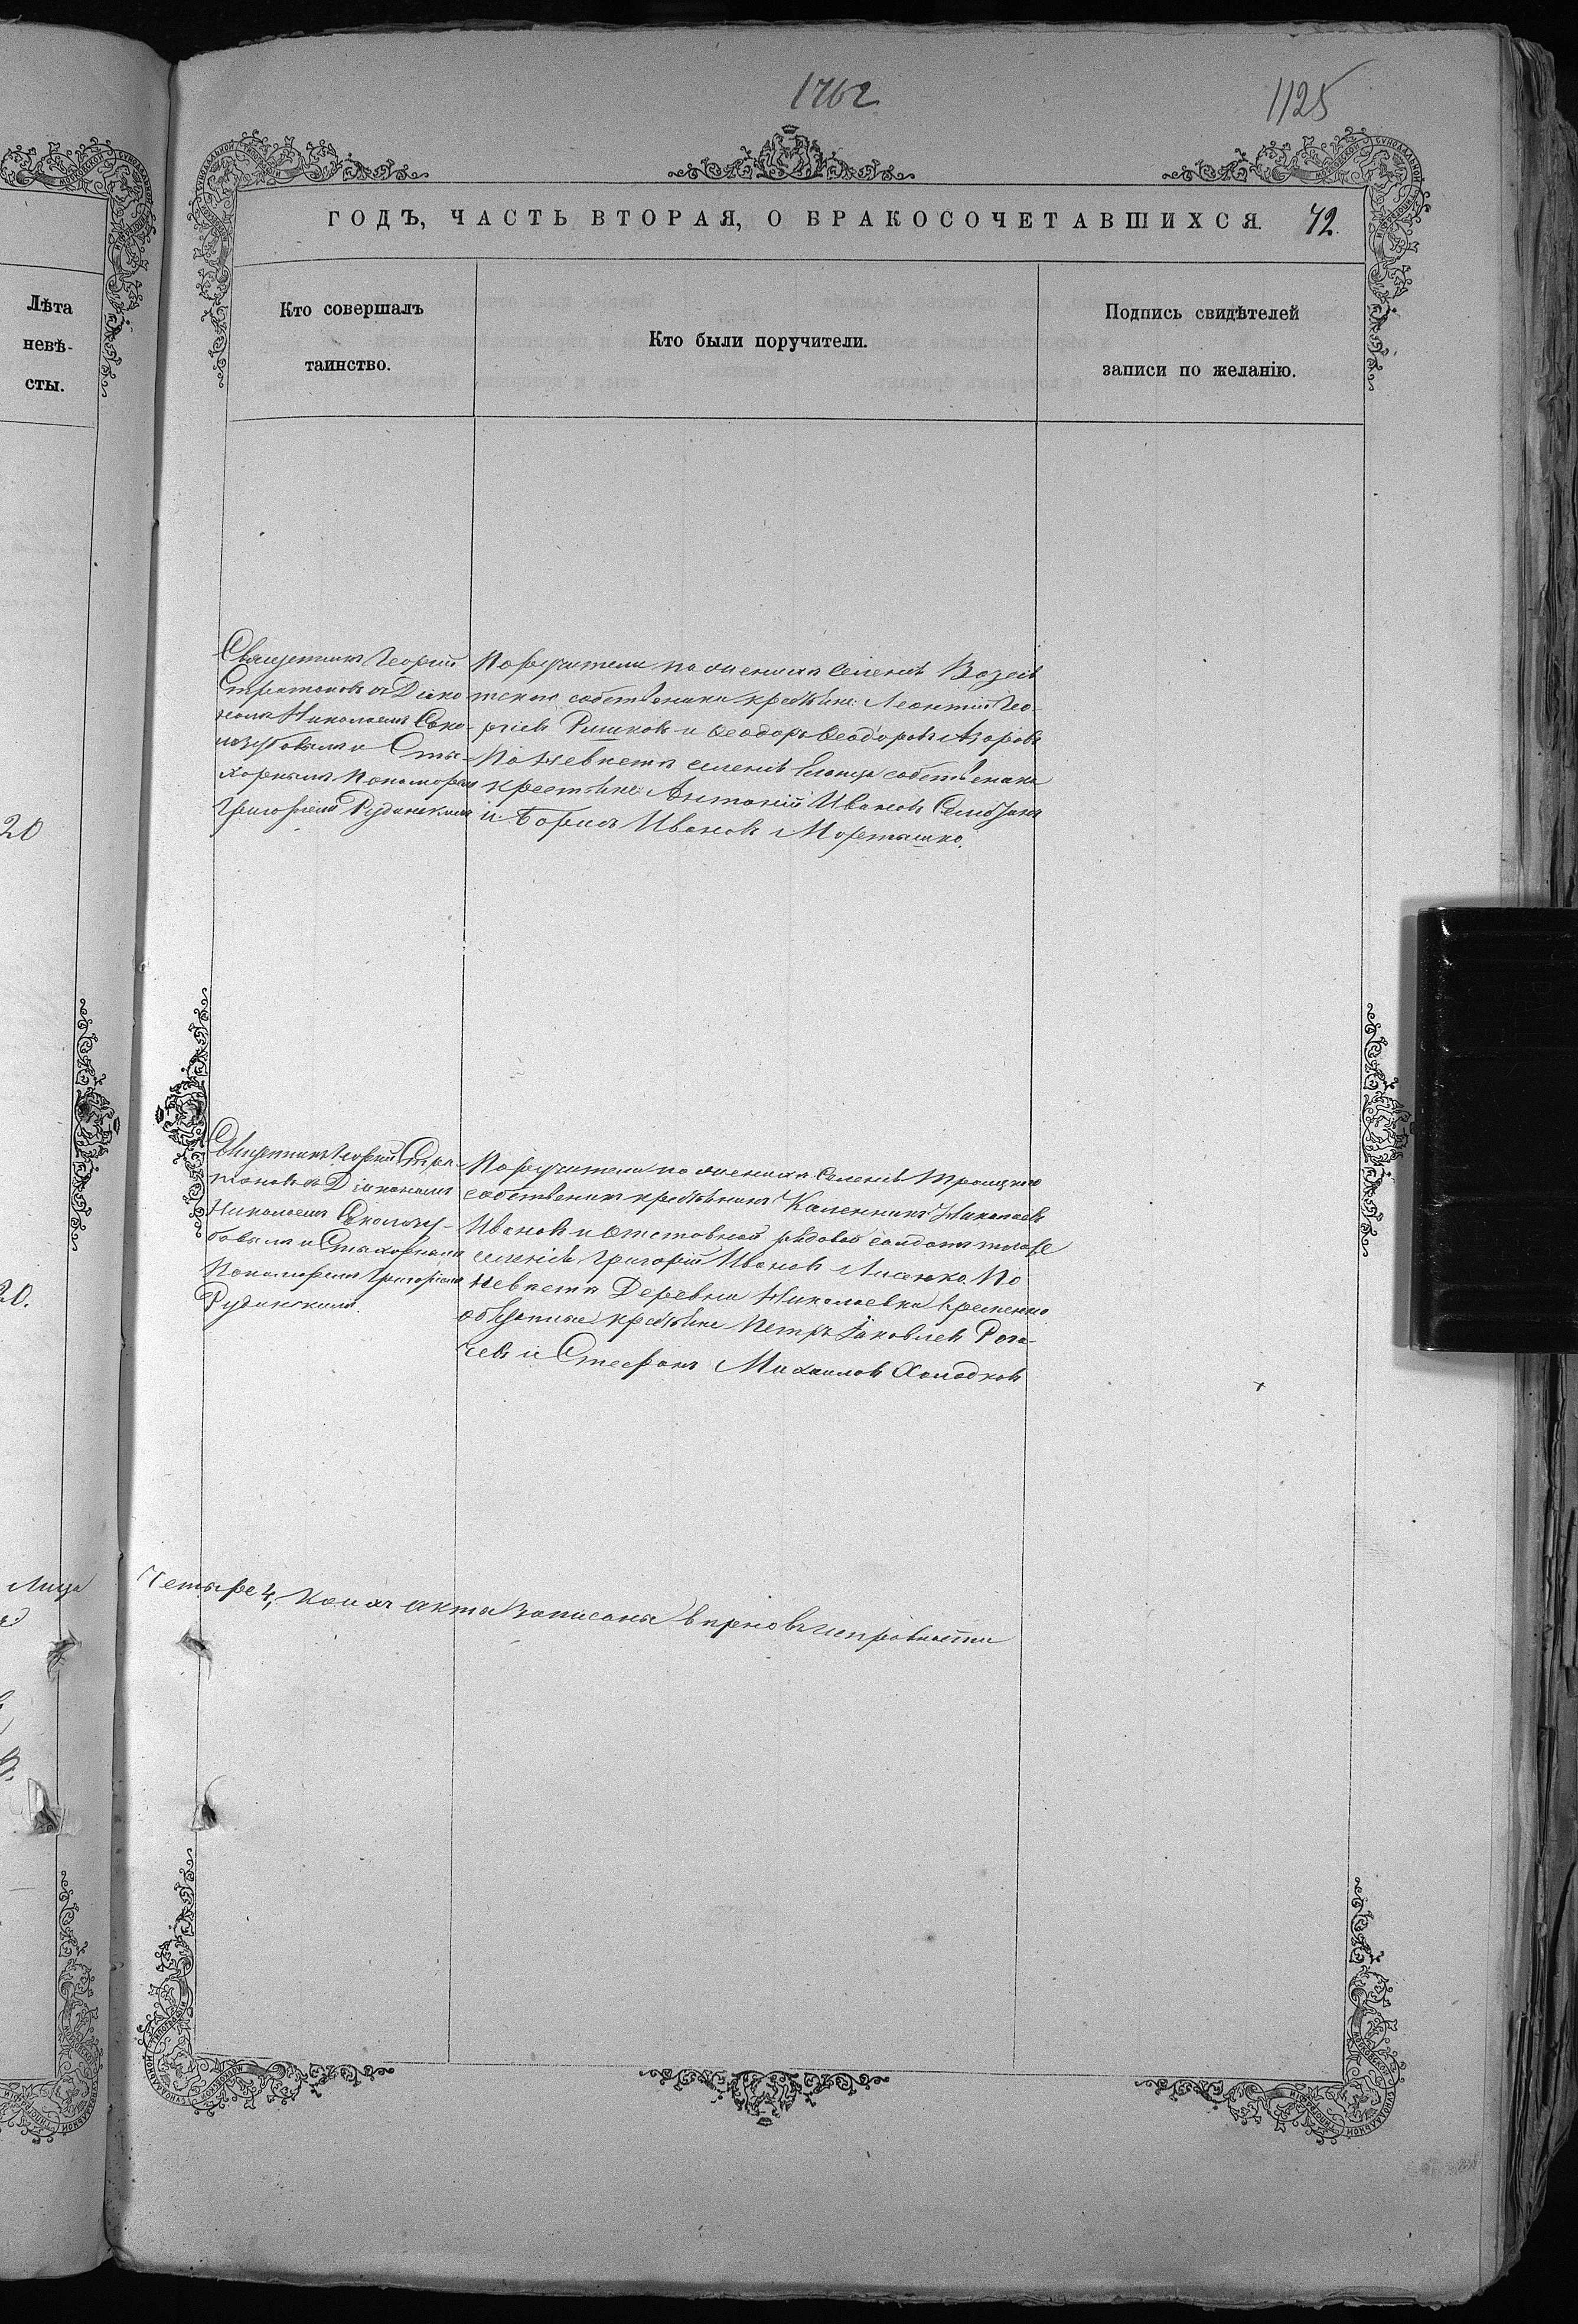 1762
1125
ГОДЪ, ЧАСТЬ ВТОРАЯ, О БРАКОСОЧЕТАВШИХСЯ.
42.
Лѣта
невѣ-
сты.
Кто совершалъ
таинство.
Кто были поручители.
Подпись свидѣтелей
записи по желанію.
20
Священникъ Георгій
Стратоновъ съ Діако
номъ Николаемъ Соко
лозубовымъ и Сти-
харнымъ Пономаремъ
Григоріемъ Рудинскимъ
Поручители по женихѣ селенія Возсія
тскаго собственики крестьяне: Леонтій Гео
ргіевъ Ришковъ и Ѳеодоръ Ѳеодоровъ Азоровъ
По невѣстѣ селенія собственики
крестьяне: Антоній Ивановъ
и Борисъ Ивановъ
20.
Священникъ Георгій Стра
тоновъ съ Діакономъ
Николаемъ Соколозу-
бовымъ и Стихарнымъ
Пономаремъ Григоріемъ
Рудинскимъ.
Поручители по женихѣ селенія Троицкаго
собственикъ крестьянинъ Каленникъ Николаевъ
Ивановъ и отставной рядовой солдатъ того же
селенія Григорій Ивановъ Лисенко По
невѣстѣ Деревни Николаевки временно
обязанные крестьяне Петръ Яковлевъ Рога-
чевъ и Стефанъ Михаиловъ Холодковъ
Лица
Четыре 4, Коихъ акты записаны